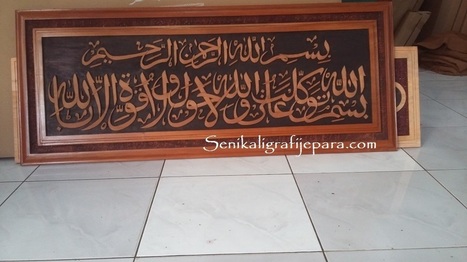 بسم الله الرحمن الرحيم
بسم الله توكلت على الله ولا حول ولا قوة إلا بالله
Senikaligrafijepara.com